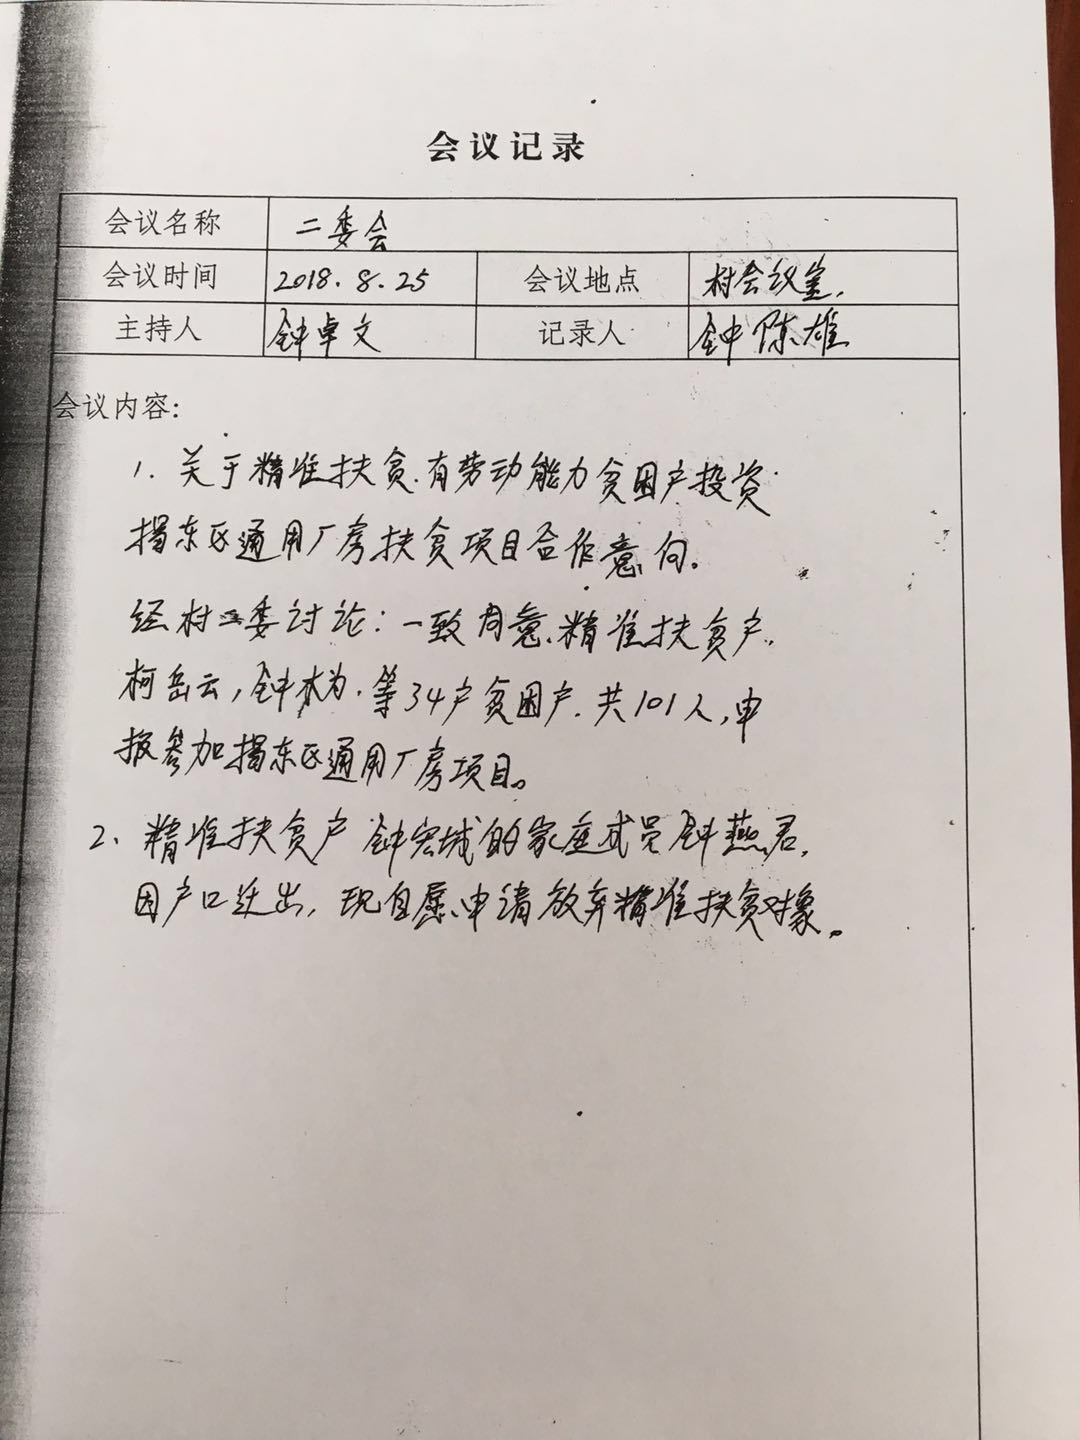 会议记录
会议名称 二委会
会议时间 2018.8.25 会议地点 村会议室,
主持人 钟卓文 记录人 钟陈雄
会议内容:
1. 关于精准扶贫.有劳动能力贫困户投资
揭东区通用厂房扶贫项目合作意向。
经村二委讨论:一致同意、精准扶贫户.
柯岳云,钟木为.等34户贫困户.共101人,申
报参加揭东区通用厂房项目。
2、精准扶贫户钟宏城的家庭成员钟燕君,
因户口迁出,现自愿、申请放弃精准扶贫对象。